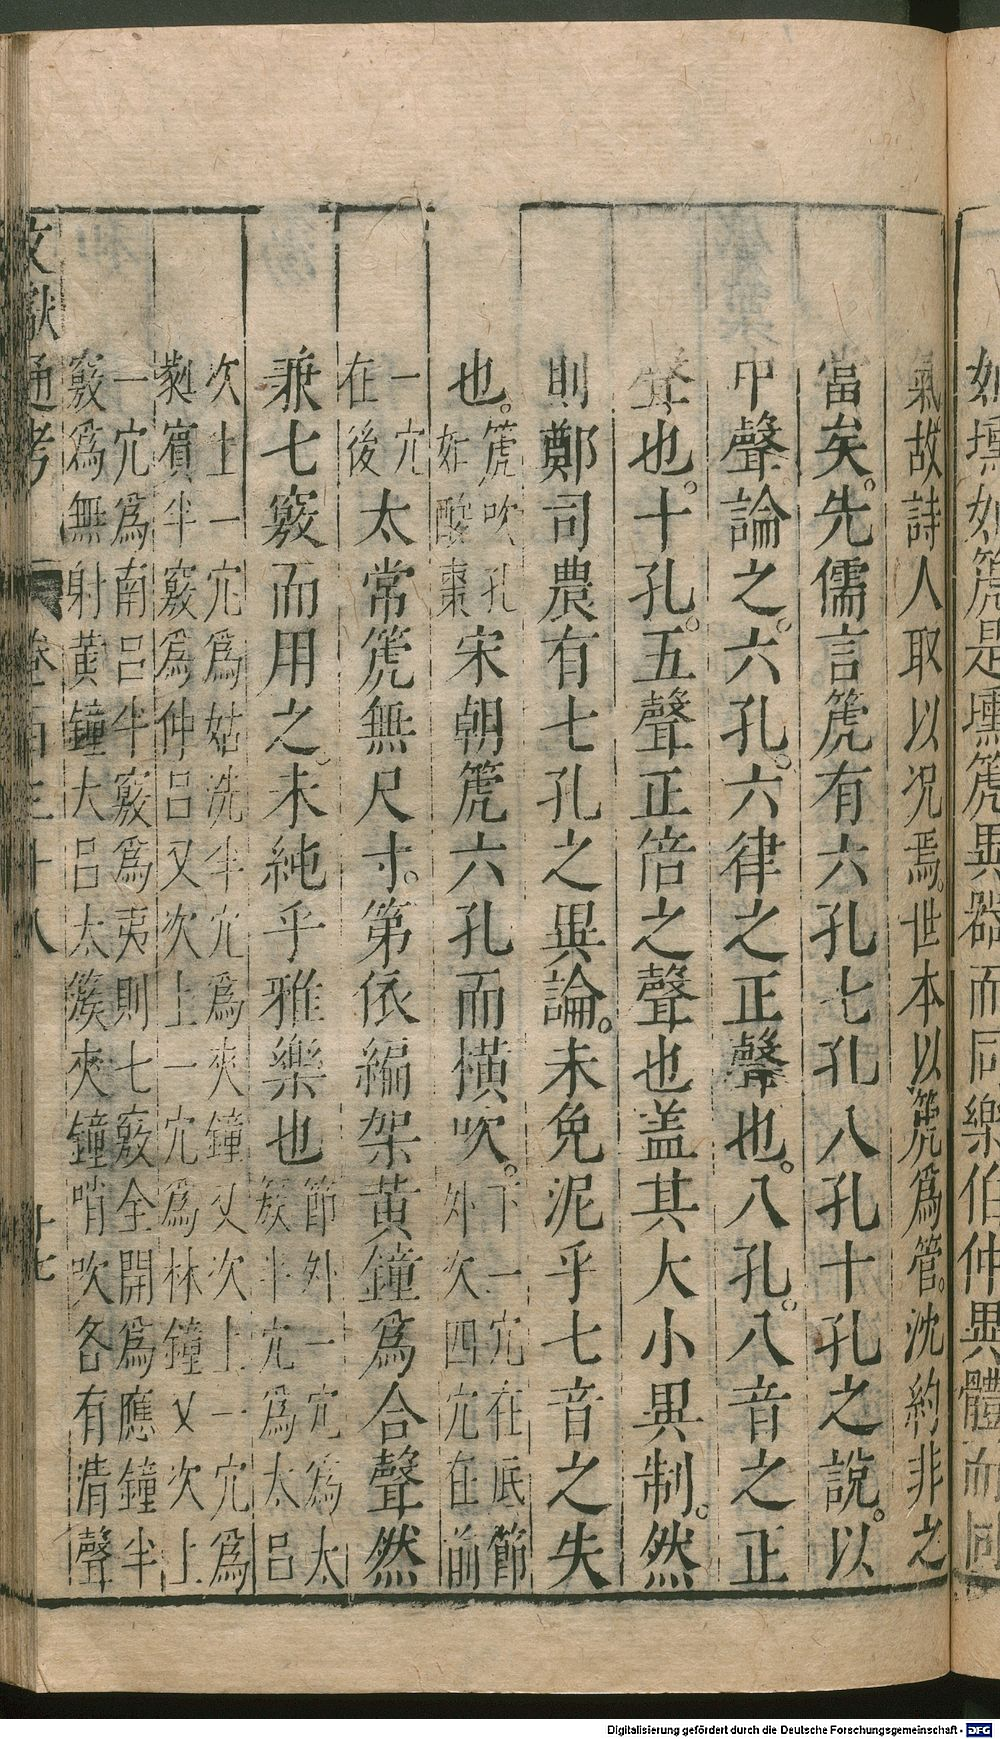 如壎如篪是壎篪異器而同樂伯仲異體而同
氣故詩人取以况焉世本以篪爲管沈約非之
當矣先儒言篪有六孔七孔八孔十孔之說以
中聲論之六孔六律之正聲也八孔八音之正
聲也十孔五聲正倍之聲也盖其大小異制然
則鄭司農有七孔之異論未免泥乎七音之失
也篪吹孔如酸棗宋朝篪六孔而橫吹下一穴在底節外次四穴在前
一穴在後太常篪無尺寸第依編架黄鐘爲合聲然
兼七竅而用之未純乎雅樂也節外一穴爲太簇半穴爲大呂
次上一穴爲姑洗半穴爲夾鐘又次上一穴爲
蕤賓半竅爲仲呂又次上一穴爲林鐘又次上
一穴爲南呂半竅爲夷則七竅全開爲應鐘半
竅爲無射黄鐘大呂太簇夾鐘哨吹各有清聲
文獻通考
卷百三十八
十七
Digitalisierung gefördert durch die Deutsche Forschungsgemeinschaft - DFG